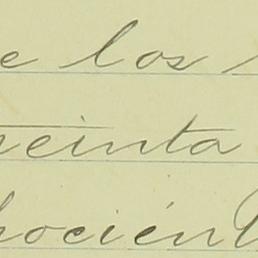 e los
reinta
hocient